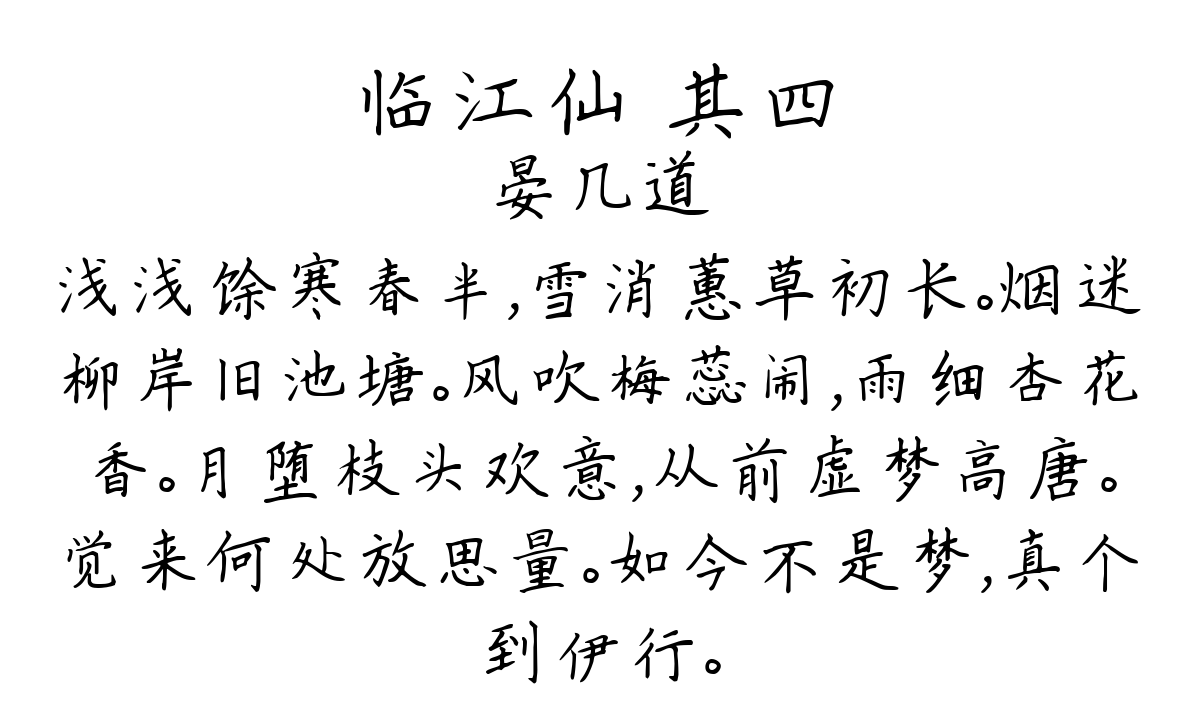 临江仙 其四
晏几道
浅浅馀寒春半,雪消蕙草初长。烟迷
柳岸旧池塘。风吹梅蕊闹,雨细杏花
香。月堕枝头欢意,从前虚梦高唐。
觉来何处放思量。如今不是梦,真个
到伊行。